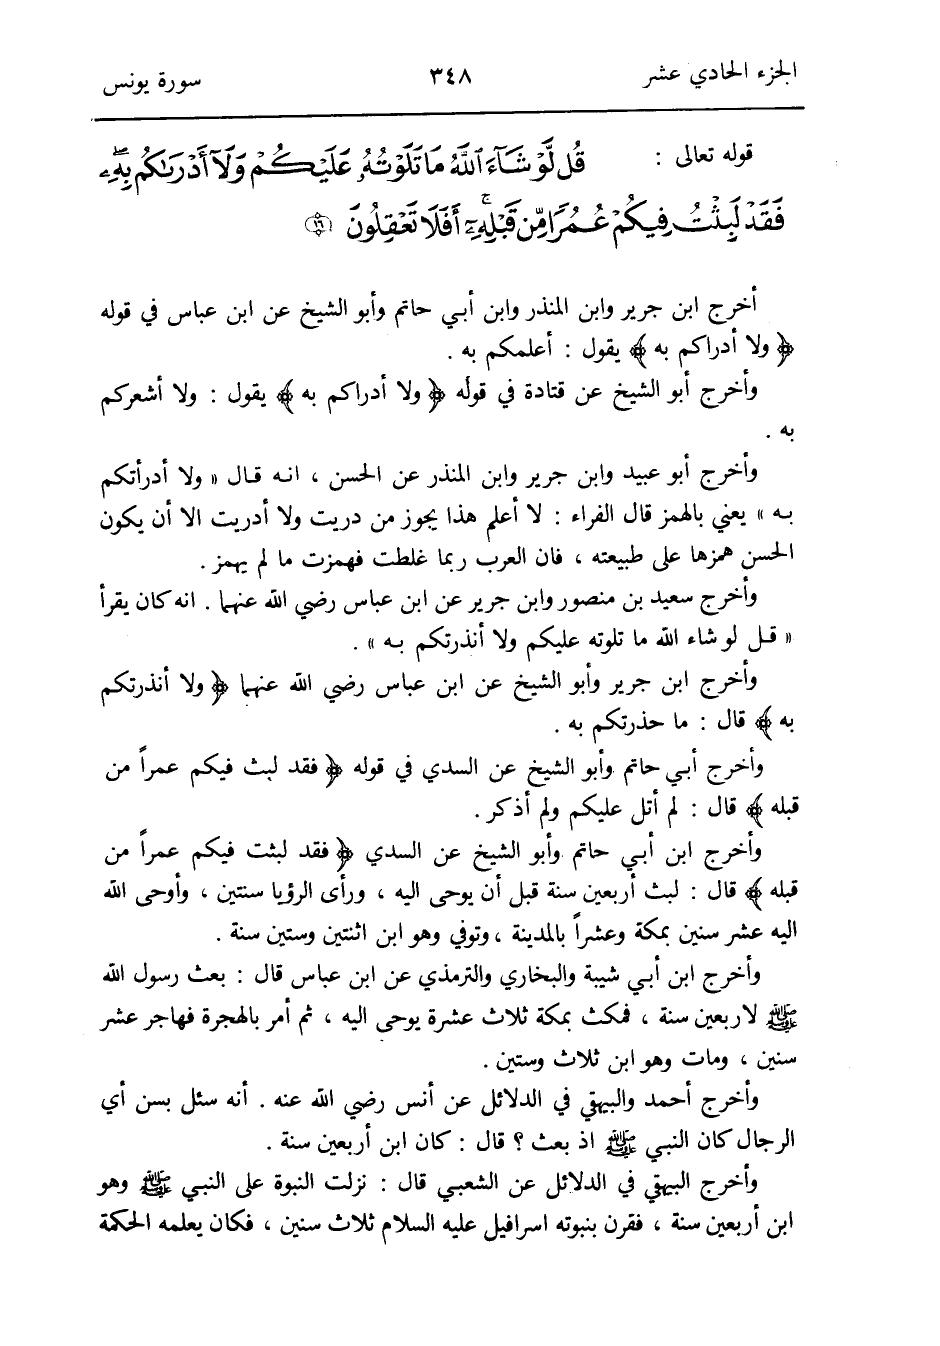 الجزء الحادي عشر ٣٤٨ سورة يونس
قوله تعالى : قُل لَّوْ شَآءَ ٱللَّهُ مَا تَلَوْتُهُۥ عَلَيْكُمْ وَلَآ أَدْرَىٰكُم بِهِۦ ۖ
فَقَدْ لَبِثْتُ فِيكُمْ عُمُرًا مِّن قَبْلِهِۦٓ ۚ أَفَلَا تَعْقِلُونَ ﴿١٦﴾
أخرج ابن جرير وابن المنذر وابن أبي حاتم وأبو الشيخ عن ابن عباس في قوله
﴿ ولا أدراكم به ﴾ يقول : أعلمكم به .
وأخرج أبو الشيخ عن قتادة في قوله ﴿ ولا أدراكم به ﴾ يقول : ولا أشعركم
به .
وأخرج أبو عبيد وابن جرير وابن المنذر عن الحسن ، انه قال « ولا أدرأتكم
به » يعني بالهمز قال الفراء : لا أعلم هذا يجوز من دريت ولا أدريت الا أن يكون
الحسن همزها على طبيعته ، فان العرب ربما غلطت فهمزت ما لم يهمز .
وأخرج سعيد بن منصور وابن جرير عن ابن عباس رضي الله عنهما . انه كان يقرأ
« قل لو شاء الله ما تلوته عليكم ولا أنذرتكم به » .
وأخرج ابن جرير وأبو الشيخ عن ابن عباس رضي الله عنهما ﴿ ولا أنذرتكم
به ﴾ قال : ما حذرتكم به .
وأخرج أبي حاتم وأبو الشيخ عن السدي في قوله ﴿ فقد لبث فيكم عمراً من
قبله ﴾ قال : لم أتل عليكم ولم أذكر .
وأخرج ابن أبي حاتم وأبو الشيخ عن السدي ﴿ فقد لبثت فيكم عمراً من
قبله ﴾ قال : لبث أربعين سنة قبل أن يوحى اليه ، ورأى الرؤيا سنتين ، وأوحى الله
اليه عشر سنين بمكة وعشراً بالمدينة ، وتوفي وهو ابن اثنتين وستين سنة .
وأخرج ابن أبي شيبة والبخاري والترمذي عن ابن عباس قال : بعث رسول الله
ﷺ لاربعين سنة ، فمكث بمكة ثلاث عشرة يوحى اليه ، ثم أمر بالهجرة فهاجر عشر
سنين ، ومات وهو ابن ثلاث وستين .
وأخرج أحمد والبيهقي في الدلائل عن أنس رضي الله عنه . أنه سئل بسن أي
الرجال كان النبي ﷺ اذ بعث ؟ قال : كان ابن أربعين سنة .
وأخرج البيهقي في الدلائل عن الشعبي قال : نزلت النبوة على النبي ﷺ وهو
ابن أربعين سنة ، فقرن بنبوته اسرافيل عليه السلام ثلاث سنين ، فكان يعلمه الحكمة